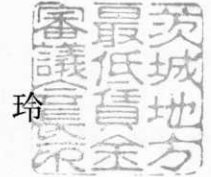 玲
茨城地方
最低賃金
審議会